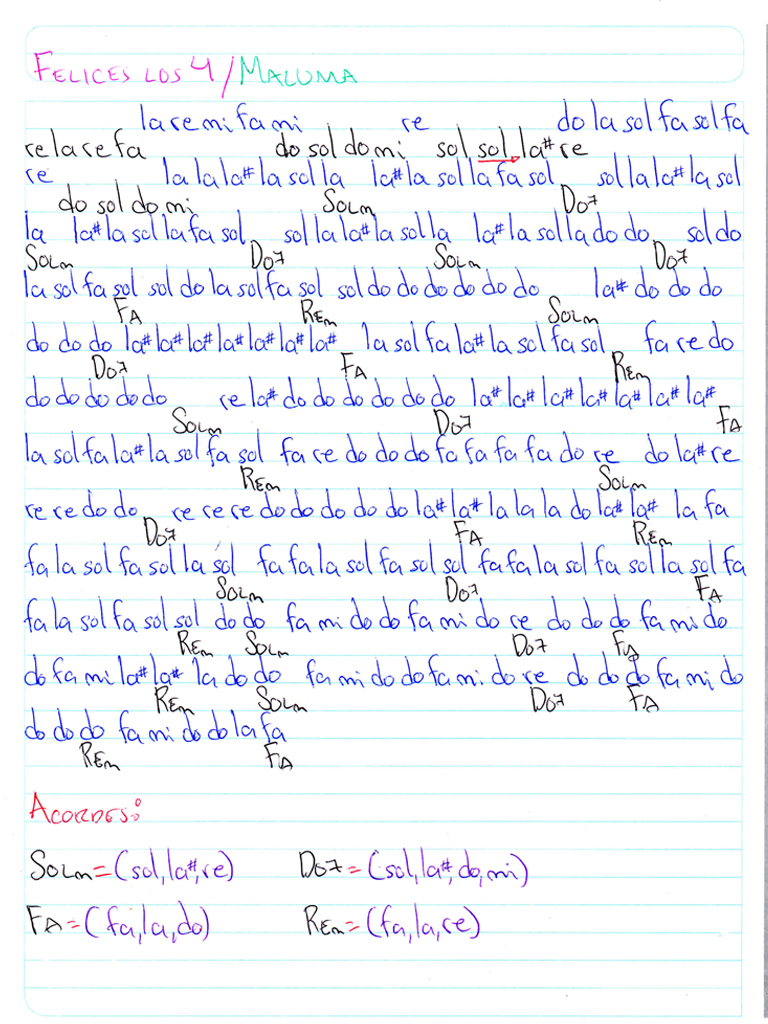 FELICES LOS 4 / MALUMA
la re mi fa mi re do la sol fa sol fa
re la re fa do sol do mi sol sol la# re
re la la la# la sol la la# la sol la fa sol sol la la# la sol
do sol do mi SOLm DO7
la la# la sol la fa sol sol la la# la sol la la# la sol la do do sol do
SOLm DO7 SOLm DO7
la sol fa sol sol do la sol fa sol sol do do do do do do la# do do do
FA REm SOLm
do do do la# la# la# la# la# la# la# la sol fa la# la sol fa sol fa re do
DO7 FA REm
do do do do do re la# do do do do do do la# la# la# la# la# la# la#
SOLm DO7 FA
la sol fa la# la sol fa sol fa re do do do fa fa fa fa do re do la# re
REm SOLm
re re do do re re re do do do do do la# la# la la la do la# la# la fa
DO7 FA REm
fa la sol fa sol la sol fa fa la sol fa sol sol fa fa la sol fa sol la sol fa
SOLm DO7 FA
fa la sol fa sol sol do do fa mi do do fa mi do re do do do fa mi do
REm SOLm DO7 FA
do fa mi la# la# la do do fa mi do do fa mi do re do do do fa mi do
REm SOLm DO7 FA
do do do fa mi do do la fa
REm FA
ACORDES:
SOLm=(sol,la#,re) DO7=(sol,la#,do,mi)
FA=(fa,la,do) REm=(fa,la,re)